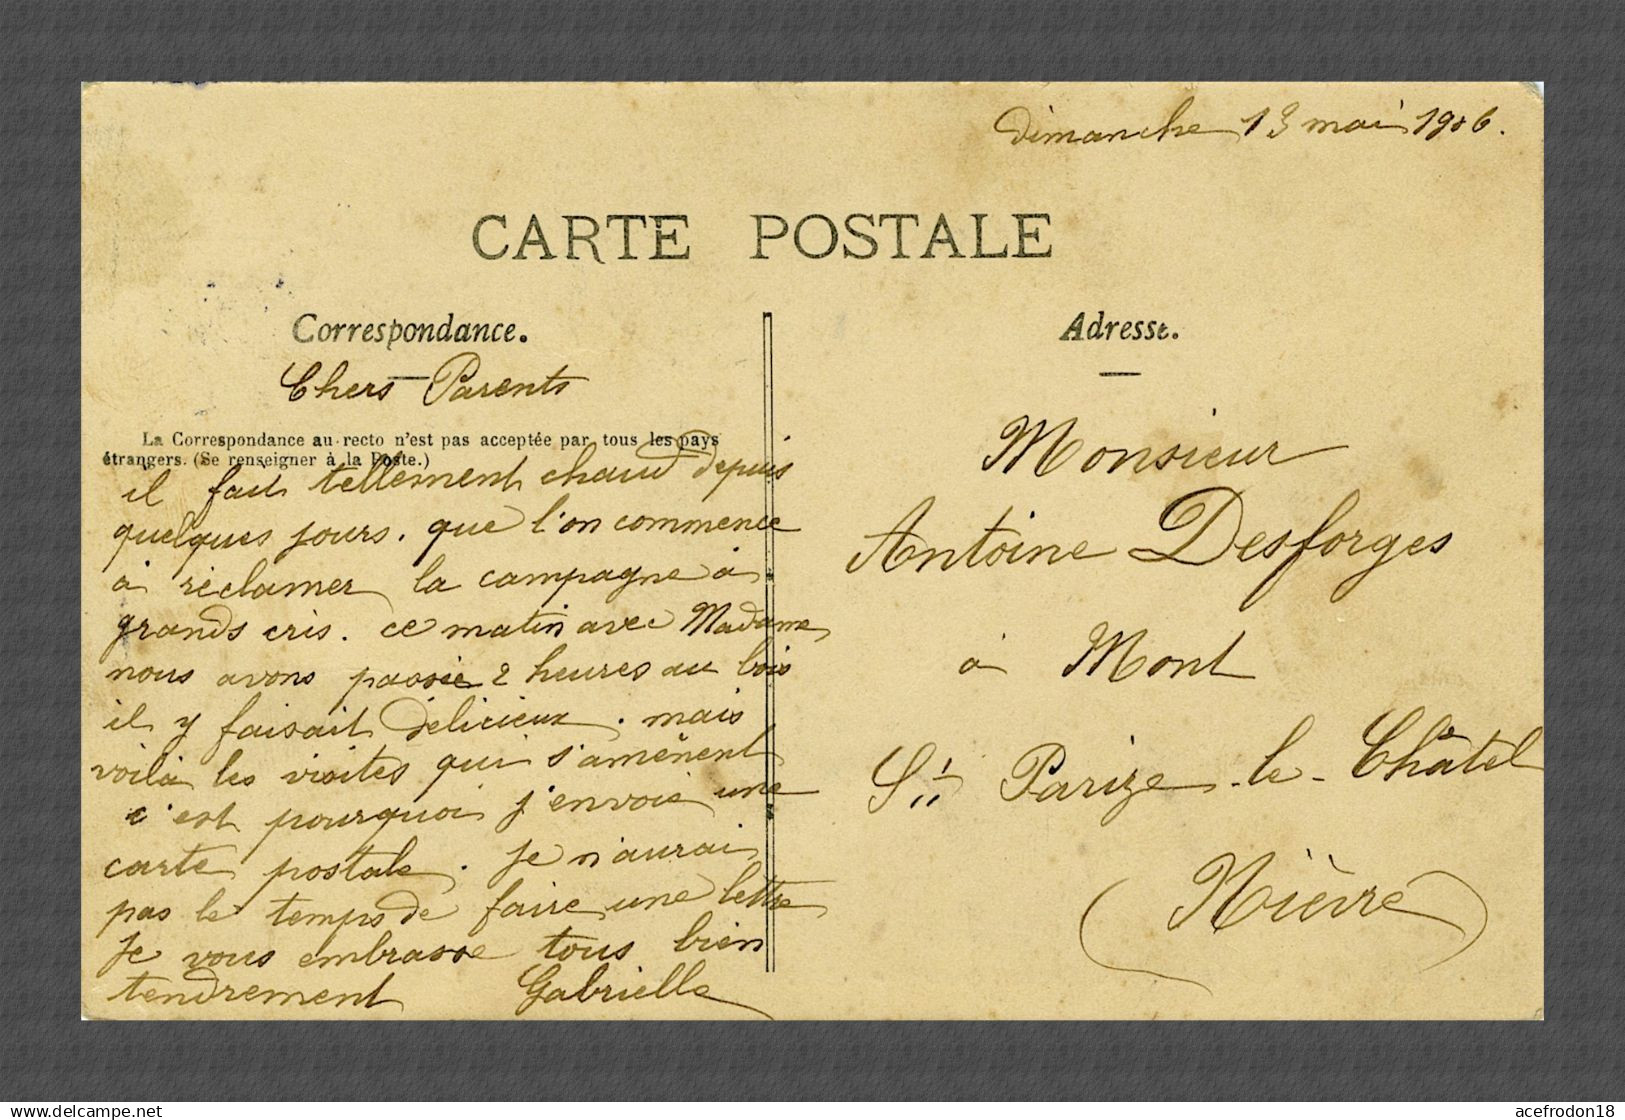 Dimanche 13 mai 1906.
CARTE POSTALE
Correspondance.
Chers Parents
La Correspondance au recto n'est pas acceptée par tous les pays
étrangers. (Se renseigner à la Poste.)
il fait tellement chaud depuis
quelques jours. que l'on commence
à réclamer la campagne à
grands cris. ce matin avec Madame
nous avons passée 2 heures au bois
il y faisait délicieux. mais
voilà les visites qui s'amênent
c'est pourquoi j'envoie une
carte postale. je n'aurai
pas le temps de faire une lettre
Je vous embrasse tous bien
tendrement Gabrielle
Adresse.
Monsieur
Antoine Desforges
à Mont
St Parize-le-Châtel
(Nièvre)
delcampe.net
acefrodon18